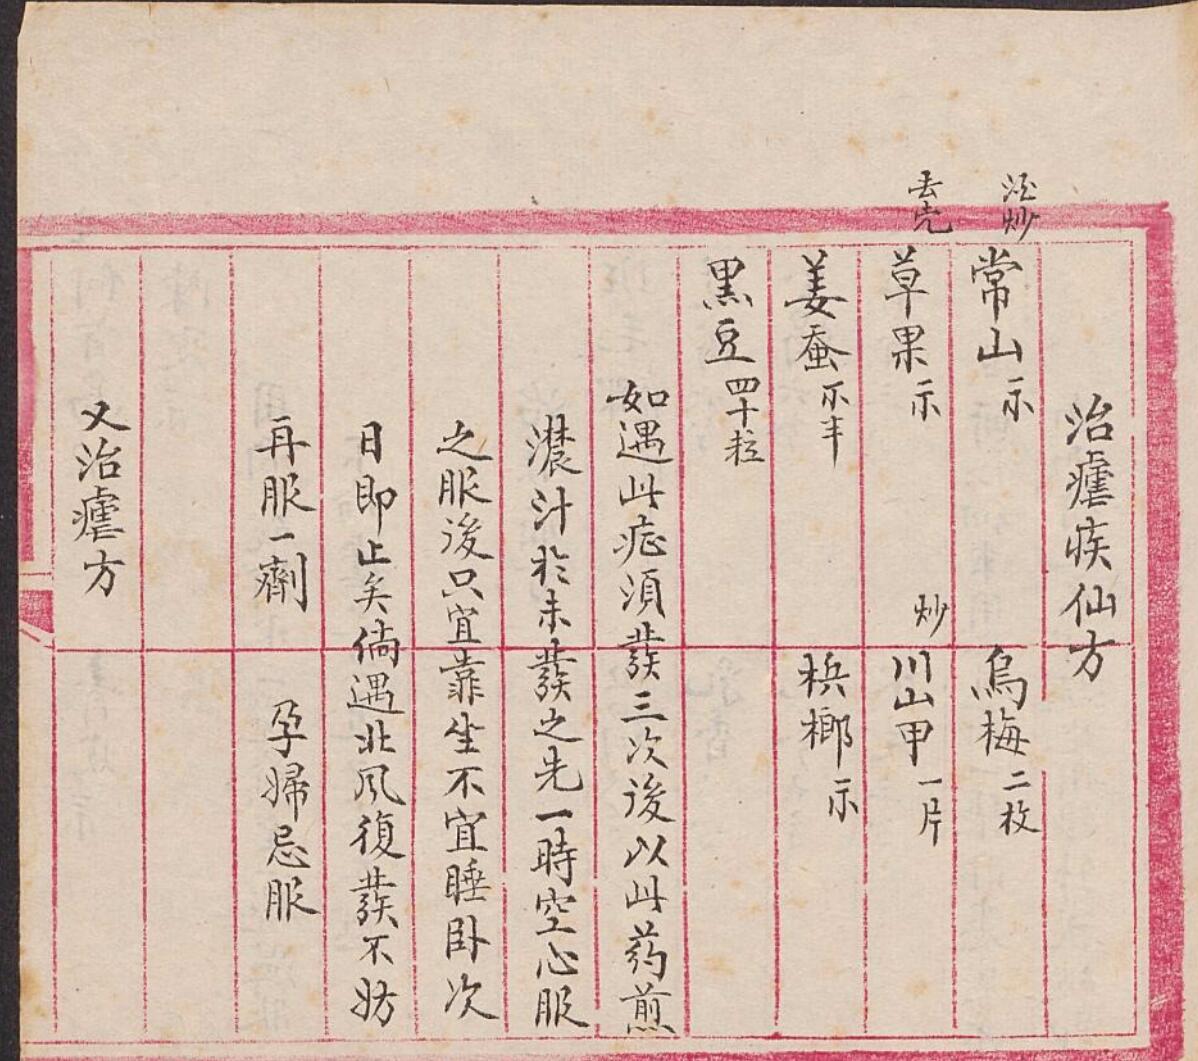 治瘧疾仙方
酒炒 常山 烏梅二枚
去壳 草果 炒 川山甲一片
姜蚕 梹榔
黒豆四十粒
如遇此症須發三次後以此药煎
濃汁於未發之先一時空心服
之服後只宜靠坐不宜睡卧次
日即止矣倘遇北风復發不妨
再服一劑 孕婦忌服
又治瘧方